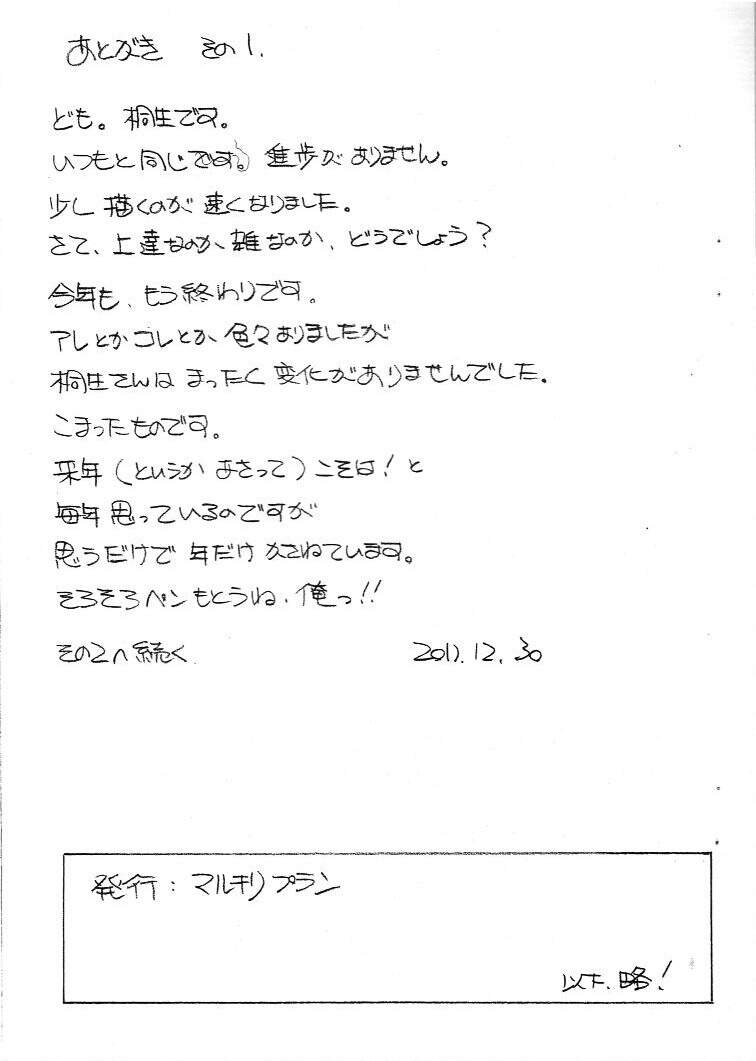 あとがき その1.
ども。桐生です。
いつもと同じです。進歩がありません。
少し描くのが速くなりました。
さて、上達なのか、雑なのか、どうでしょう?
今年も、もう終わりです。
アレとかコレとか、色々ありましたが
桐生さんはまったく変化がありませんでした。
こまったものです。
来年(というかあさって)こそは!と
毎年思っているのですが
思うだけで年だけかさねています。
そろそろペンもとうね、俺っ!!
その2へ続く
2011.12.30
発行:マルキリプラン
以下、略!